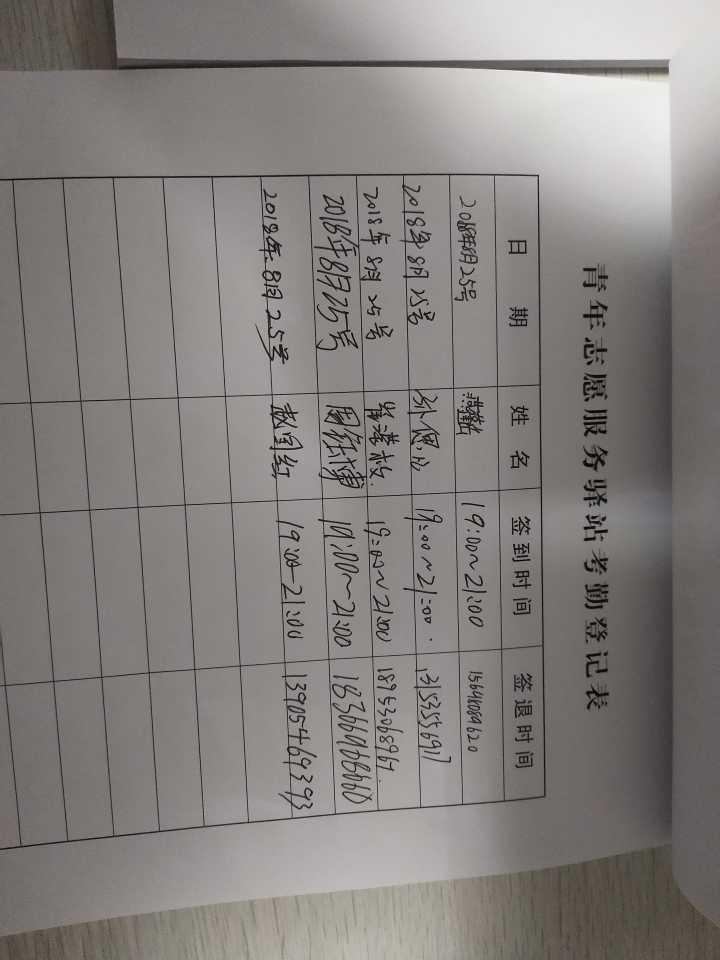 青年志愿服务驿站考勤登记表
日期 姓名 签到时间 签退时间
2018年8月25号 19:00~21:00 15648084620
2018年8月25号 19:00~21:00. 13153556917
2018年8月25号 19:00~21:00 18953068967.
2018年8月25号 周钰博 19:00~21:00 18366668660
2018年8月25号 赵闫红 19:00-21:00 13905469393